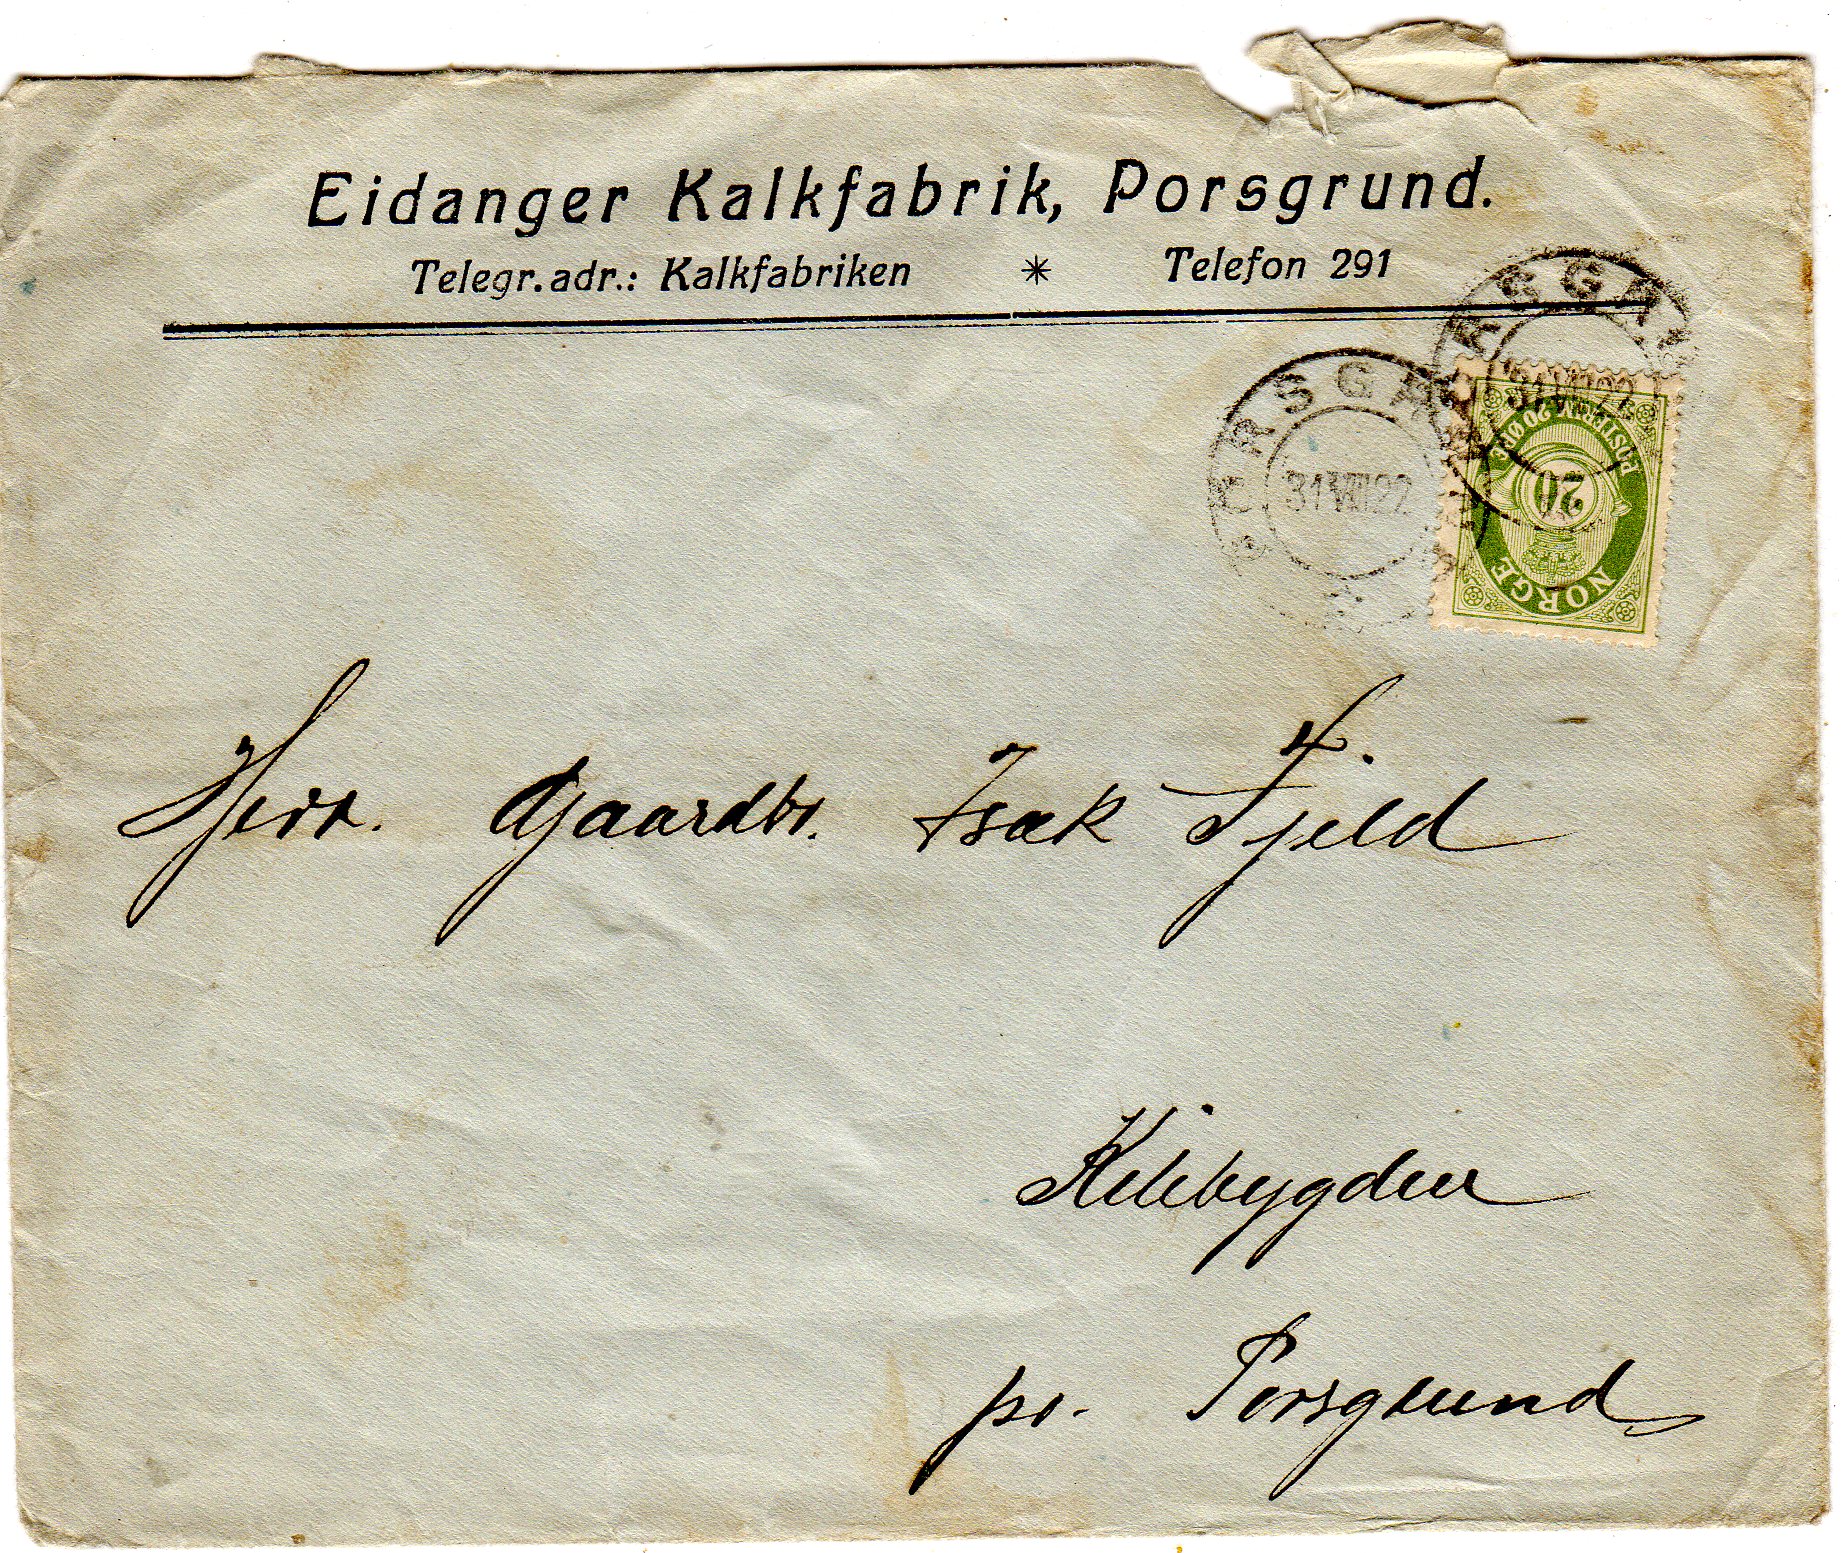 Eidanger Kalkfabrik, Porsgrund.
Telegr.adr.: Kalkfabriken * Telefon 291
PORSGRUND
31 VIII 22
PORSGRUND
31 VIII 22
POSTFRIM 20 ØRE
20
NORGE
Herr. Gaardbr. Isak Fjeld
Kilebygden
pr. Porsgrund